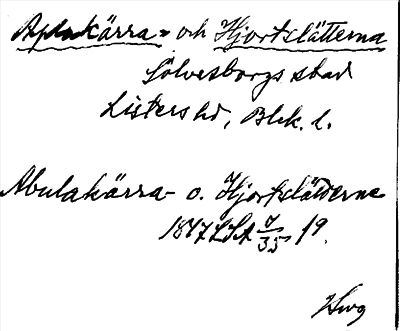 Aplakärra- och Hjortslätterna
Sölvesborgs stad
Listers hd, Blek. l.
Abulakärra- o. Hjortsläterne
1847 LSA 7/35 19.